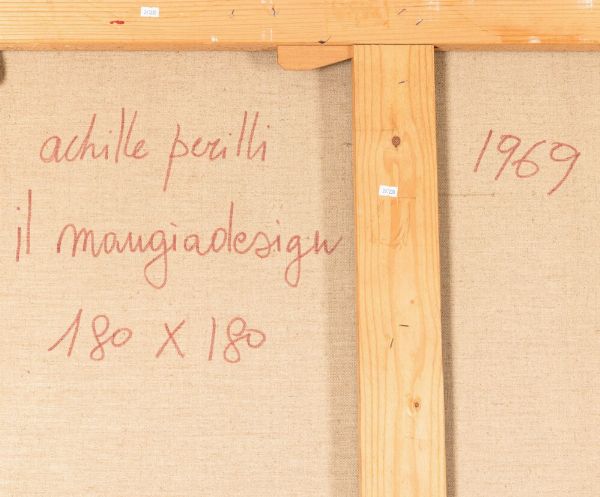 achille perilli
1969
il mangiadesign
180 X 180